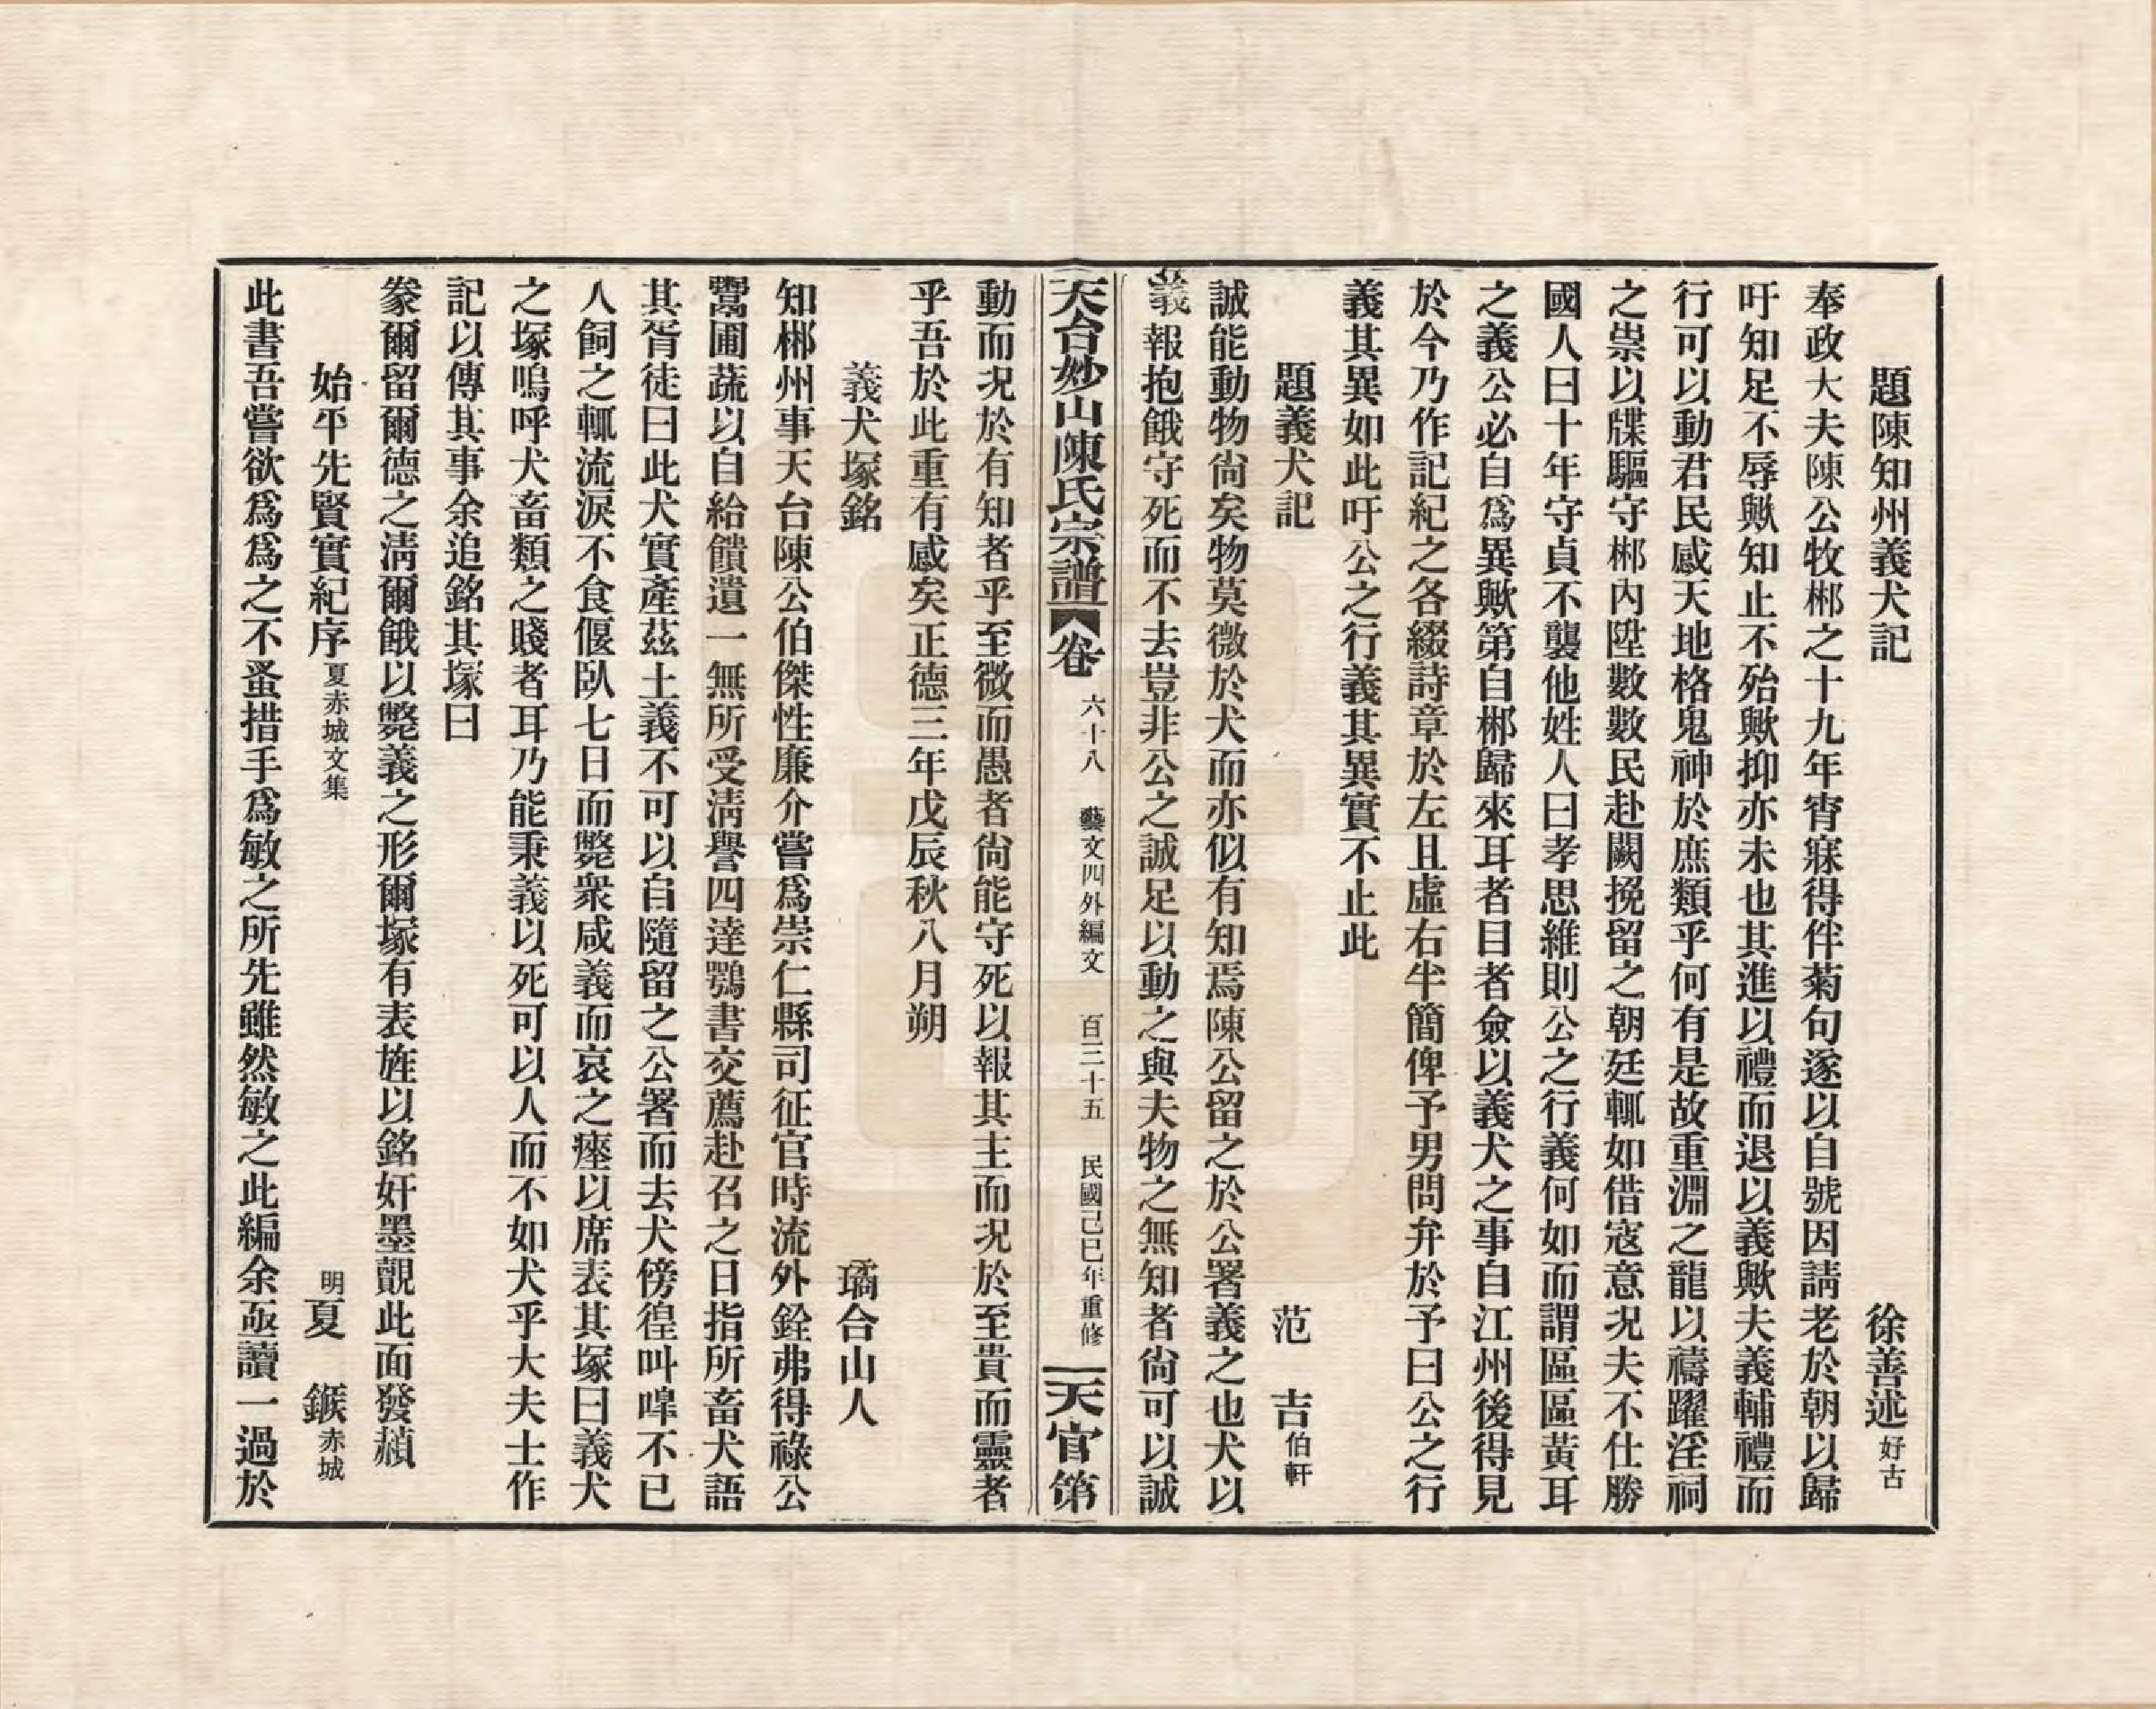 題陳知州義犬記　徐善述好古
奉政大夫陳公牧郴之十九年宵寐得伴菊句遂以自號因請老於朝以歸
吁知足不辱歟知止不殆歟抑亦未也其進以禮而退以義歟夫義輔禮而
行可以動君民感天地格鬼神於庶類乎何有是故重淵之龍以禱躍淫祠
之祟以牒驅守郴內陞數數民赴闕挽留之朝廷輒如借寇意況夫不仕勝
國人曰十年守貞不襲他姓人曰孝思維則公之行義何如而謂區區黃耳
之義公必自爲異歟第自郴歸來耳者目者僉以義犬之事自江州後得見
於今乃作記紀之各綴詩章於左且虛右半簡俾予男問弁於予曰公之行
義其異如此吁公之行義其異實不止此
題義犬記　范吉伯軒
誠能動物尙矣物莫微於犬而亦似有知焉陳公留之於公署義之也犬以
義報抱餓守死而不去豈非公之誠足以動之與夫物之無知者尙可以誠
天台妙山陳氏宗譜　卷　六十八　藝文四外編文　百三十五　民國己巳年重修　天官第
動而況於有知者乎至微而愚者尙能守死以報其主而況於至貴而靈者
乎吾於此重有感矣正德三年戊辰秋八月朔
義犬塚銘　璚合山人
知郴州事天台陳公伯傑性廉介嘗爲崇仁縣司征官時流外銓弗得祿公
鬻圃蔬以自給饋遺一無所受淸譽四達鶚書交薦赴召之日指所畜犬語
其胥徒曰此犬實產茲土義不可以自隨留之公署而去犬傍徨叫嘷不已
人飼之輒流淚不食偃臥七日而斃衆咸義而哀之瘞以席表其塚曰義犬
之塚嗚呼犬畜類之賤者耳乃能秉義以死可以人而不如犬乎大夫士作
記以傳其事余追銘其塚曰
豢爾留爾德之淸爾餓以斃義之形爾塚有表旌以銘奸墨覿此面發赬
始平先賢實紀序夏赤城文集　明夏鍭赤城
此書吾嘗欲爲爲之不蚤措手爲敏之所先雖然敏之此編余亟讀一過於